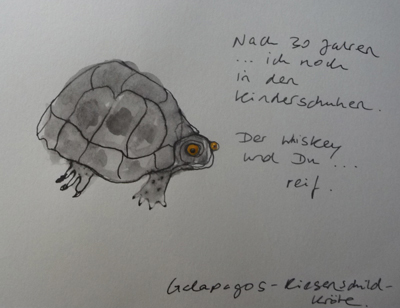 Nach 30 Jahren
... ich noch
in den
Kinderschuhen.
Der Whiskey
und Du ...
reif.
Galapagos - Riesenschild-
kröte.